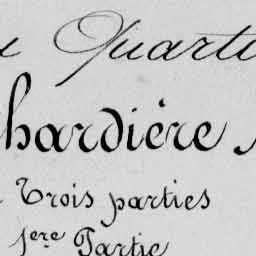 Quarti
hardière
Trois parties
1ere Partie